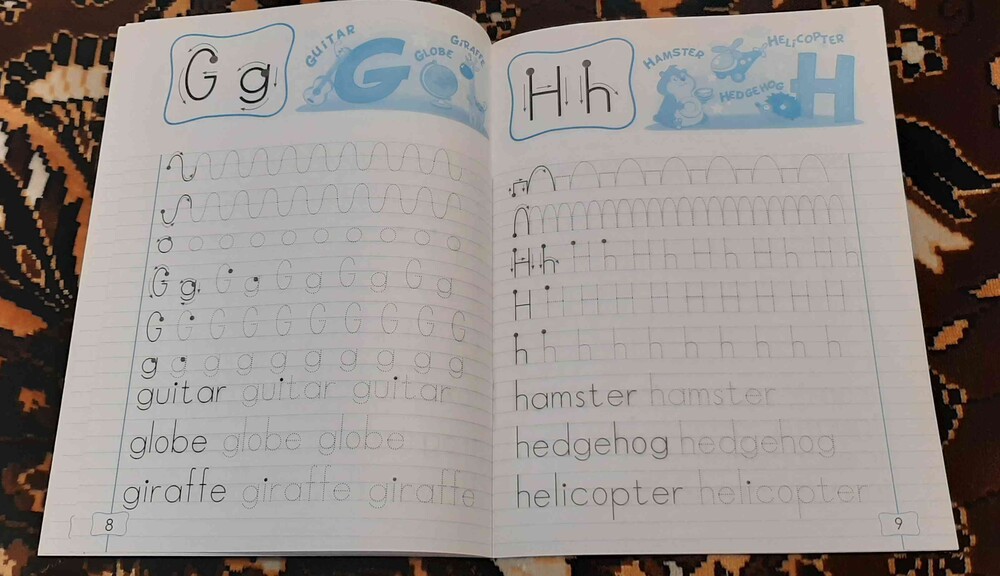 G g
GUITAR
G
GLOBE
GiRAFFE
G g G g G g G g G g
G G G G G G G G G G
g g g g g g g g g g
guitar guitar guitar
globe globe globe
giraffe giraffe giraffe
8
H h
HAMSTER
HELiCOPTER
HEDGEHOG
H
H h H h H h H h H h H h
H H H H H H H H H H
h h h h h h h h h h
hamster hamster
hedgehog hedgehog
helicopter helicopter
9